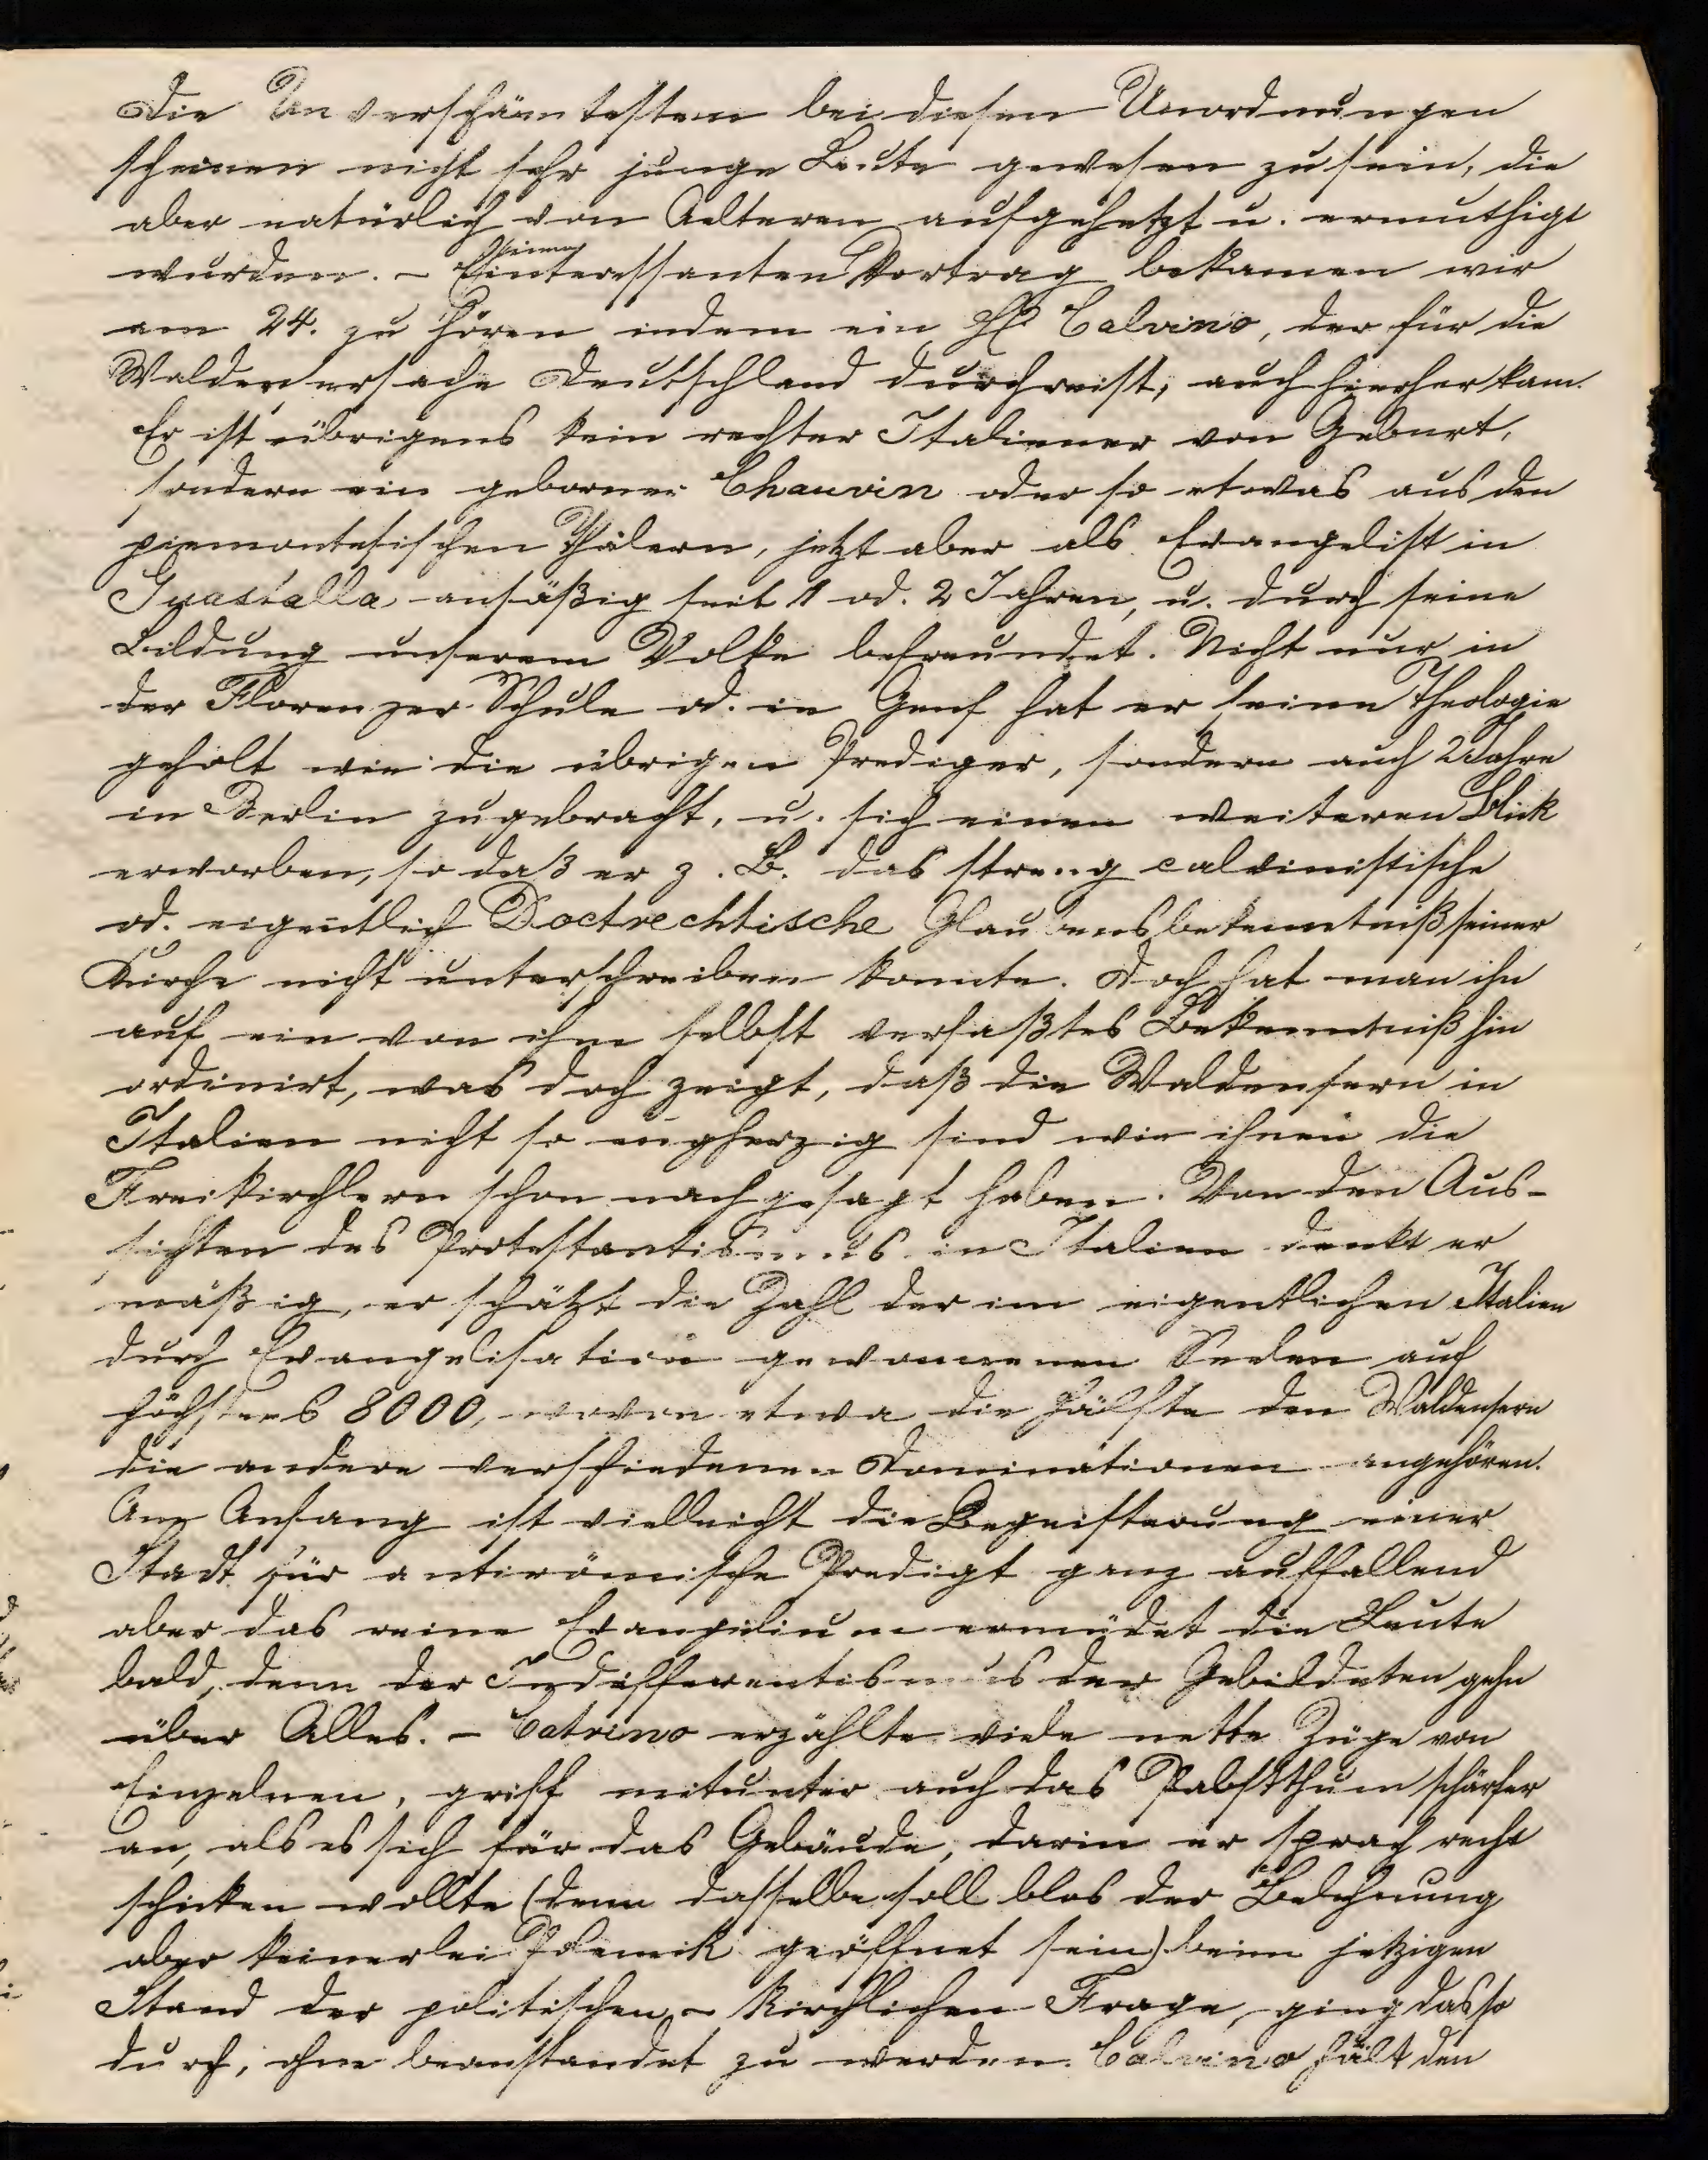 Die Unverschämtesten bei diesen Unordnungen
scheinen nicht sehr junge Leute gewesen zu sein, die
aber natürlich von Aelteren aufgehetzt u. ermuthigt
wurden. – Einen interessanten Vortrag bekamen wir
am 24. zu hören indem ein H. Calvino, der für die
Waldensersache Deutschland durchreist, auch hierher kam.
Er ist übrigens kein rechter Italiener von Geburt,
sondern ein geborner Chauvin oder so etwas aus den
piemontesischen Thälern, jetzt aber als Evangelist in
Guastalla ansäßig seit 1 od. 2 Jahren, u. durch seine
Bildung unserem Volke befreundet. Nicht nur in
der Florenzer Schule od. in Genf hat er seine Theologie
geholt wie die übrigen Prediger, sondern auch 2 Jahre
in Berlin zugebracht, u. sich einen weiteren Blick
erworben, so daß er z. B. das streng calvinistische
od. eigentlich Doctrechtische Glaubensbekenntniß seiner
Kirche nicht unterschreiben konnte. Doch hat man ihn
auf ein von ihm selbst verfaßtes Bekenntniß hin
ordinirt, was doch zeigt, daß die Waldensern in
Italien nicht so engherzig sind wie ihnen die
Freikirchlern schon nachgesagt haben. Von den Aus-
sichten des Protestantismus in Italien denkt er
mäßig, er schätzt die Zahl der im eigentlichen Italien
durch Evangelisation gewonnenen Seelen auf
höchstens 8000, wovon etwa die Hälfte den Waldensern
die andere verschiedenen Dominationen angehören.
Am Anfang ist vielleicht die Begeisterung einer
Stadt für antirömische Predigt ganz auffallend
aber das reine Evangelium ermüdet die Leute
bald, denn der Indifferentismus der Gebildeten gehn
über Alles. – Catvino erzählte viele nette Züge von
Einzelnen, griff mitunter auch das Pabstthum schärfer
an, als es sich für das Gebäude, darin er sprach recht
schicken wollte (denn dasselbe soll blos der Belehrung
aber keinerlei Polemik geöffnet sein) beim jetzigen
Stand der politischen – kirchlichen Frage, ging das so
durch, ohne beanstandet zu werden. Calvino hält den